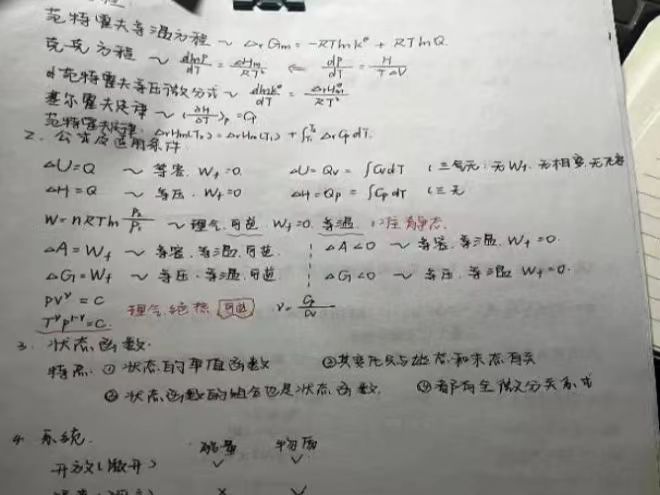 范特霍夫等温方程 ~ ΔrGm = -RTlnK⁰ + RTlnQ
克克方程 ~ dlnP/dT = ΔHm/RT² ⇐ dP/dT = H/TΔV
范特霍夫等压微分式 ~ dlnK⁰/dT = ΔrHm⁰/RT²
基尔霍夫定律 ~ (∂H/∂T)p = Cp
范特霍夫定律: ΔrHm(T₂) = ΔrHm(T₁) + ∫ ΔrCp dT.
2. 公式及适用条件
ΔU=Q ~ 等容. Wf=0. ΔU=Qv=∫CvdT (三气无: 无Wf. 无相变.
ΔH=Q ~ 等压. Wf=0 ΔH=Qp=∫CpdT (三无
W=nRTln P₂/P₁ ~ 理气.可逆. Wf=0. 等温.
ΔA=Wf ~ 等容.等温.可逆. ΔA<0 ~ 等容.等温. Wf=0.
ΔG=Wf ~ 等压.等温.可逆 ΔG<0 ~ 等压.等温 Wf=0.
PVʳ=C
TʳP¹⁻ʳ=C. 理气.绝热 可逆 r=Cp/Cv
3. 状态函数.
特点: ① 状态的单值函数 ② 其变化只与始态和末态有关
③ 状态函数的组合也是状态函数. ④ 都有全微分关系式
4. 系统. 能量 物质
开放(敞开) ✓ ✓
× ✓